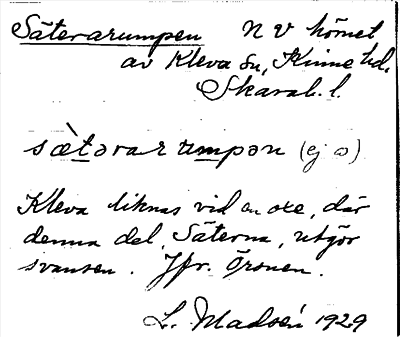 Säterarumpen N V hörnet
av Kleva sn, Kinne hd.
Skarab. l.
sæ̀tərar rumpən (ej ɷ)
Kleva liknas vid en oxe, där
denna del, Säterna, utgör
svansen. Jfr. Öronen.
L. Madsén 1929